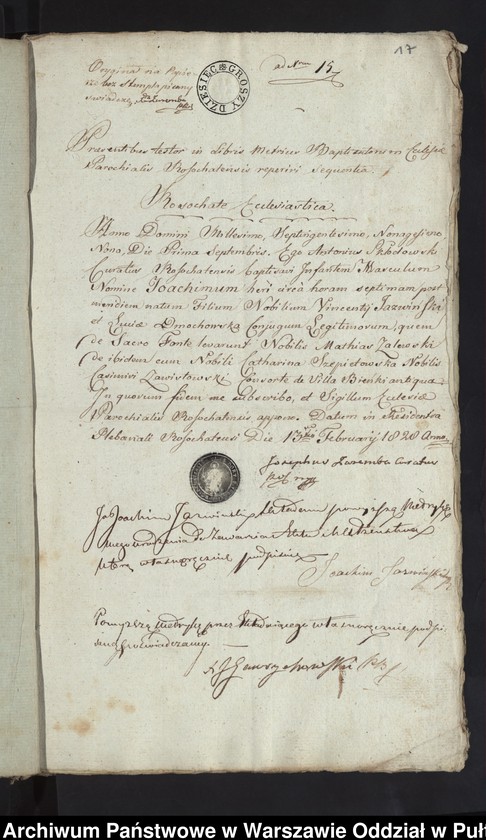 17
Oryginał na Papie
rze bez stempla pisany
świadczę Zaremba
DZIESIĘĆ GROSZY
ad Nrum 15
Praesentibus testor in Libris Metrices Baptisatorum Ecclesiae
Parochialis Rosochatensis reperiri sequentia.
Rosochate Ecclesiastica
Anno Domini Millesimo, Septingentesimo, Nonagesimo
Nono, Die Prima Septembris. Ego Antonius Skłodowski
Curatus Rosochatensis baptisavi Infantem Masculum
Nomine Joachimum heri circa horam septimam post
meridiem natum Filium Nobilium Vincentij Jazwiński
et Ludovica Dmochowska Conjugum Legitimorum, quem
de Sacro Fonte levarunt Nobilis Mathias Zalewski
de ibidem cum Nobili Catharina Szepietowska Nobilis
Casimiri Zawistowski Consorte de Villa Bieńki antiqua.
In quorum fidem me subscribo, et Sigillum Ecclesiae
Parochialis Rosochatensis appono. Datum in Residentia
Plebanali Rosochateus Die 13 February 1828 Anno
Josephus Zaremba Curatus
Ja Joachim Jazwiński składam powyższą Metrykę
mego urodzenia do zawarcia Slubu Małżeństwa
którą własnoręcznie podpisuję
Joachim Jazwiński
Powyższą metrykę przez składającego własnoręcznie podpi
saną poświadczamy.
Archiwum Państwowe w Warszawie Oddział w Puł